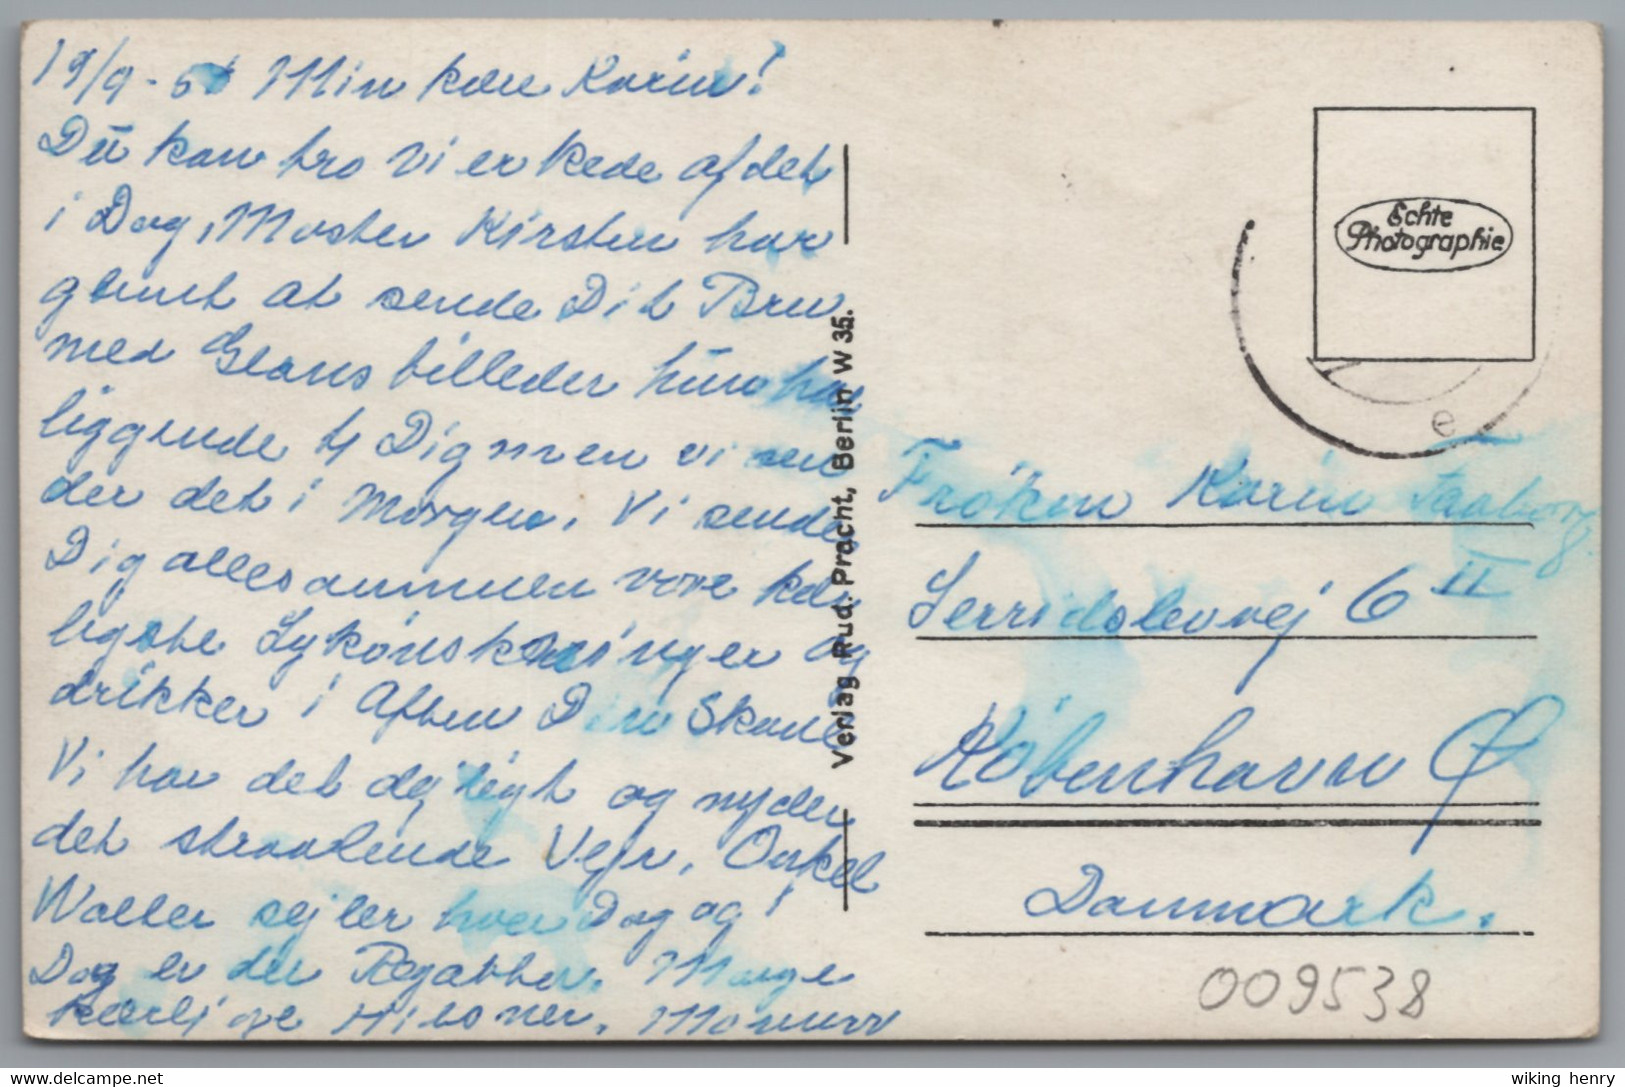 19/9-5 Min kære Karin!
Du kan tro vi er kede af det
i Dag, Moster Kirsten har
glemt at sende Dit Brev
med Glansbilleder hun har
liggende til Dig men vi sen
der det i Morgen. Vi sender
Dig allesammen vore kær
ligste Lykønskninger og
drikker i Aften Din Skaal
Vi har det dejligt og nyder
det straalende Vejr. Onkel
Walter sejler hver Dag og i
Dag er der Regatta. Mange
kærlige Hilsner.
Verlag Rud. Pracht, Berlin W 35.
Echte
Photographie
e
Frøken Karin
Serridslevvej 6 II
København Ø
Danmark.
009538
delcampe.net
wiking henry